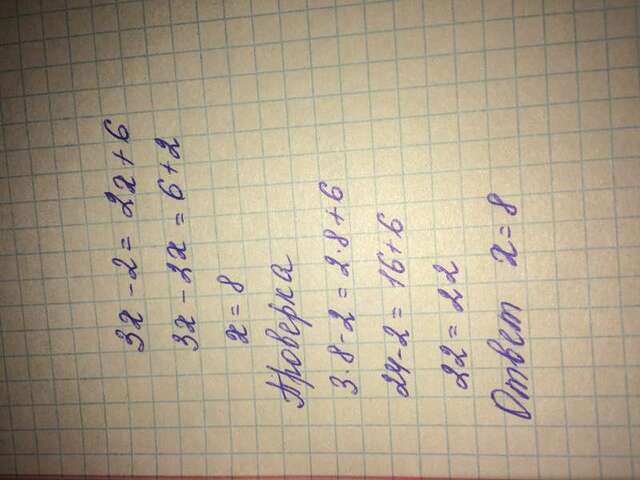 3x - 2 = 2x + 6
3x - 2x = 6 + 2
x = 8
Проверка
3 · 8 - 2 = 2 · 8 + 6
24 - 2 = 16 + 6
22 = 22
Ответ x = 8